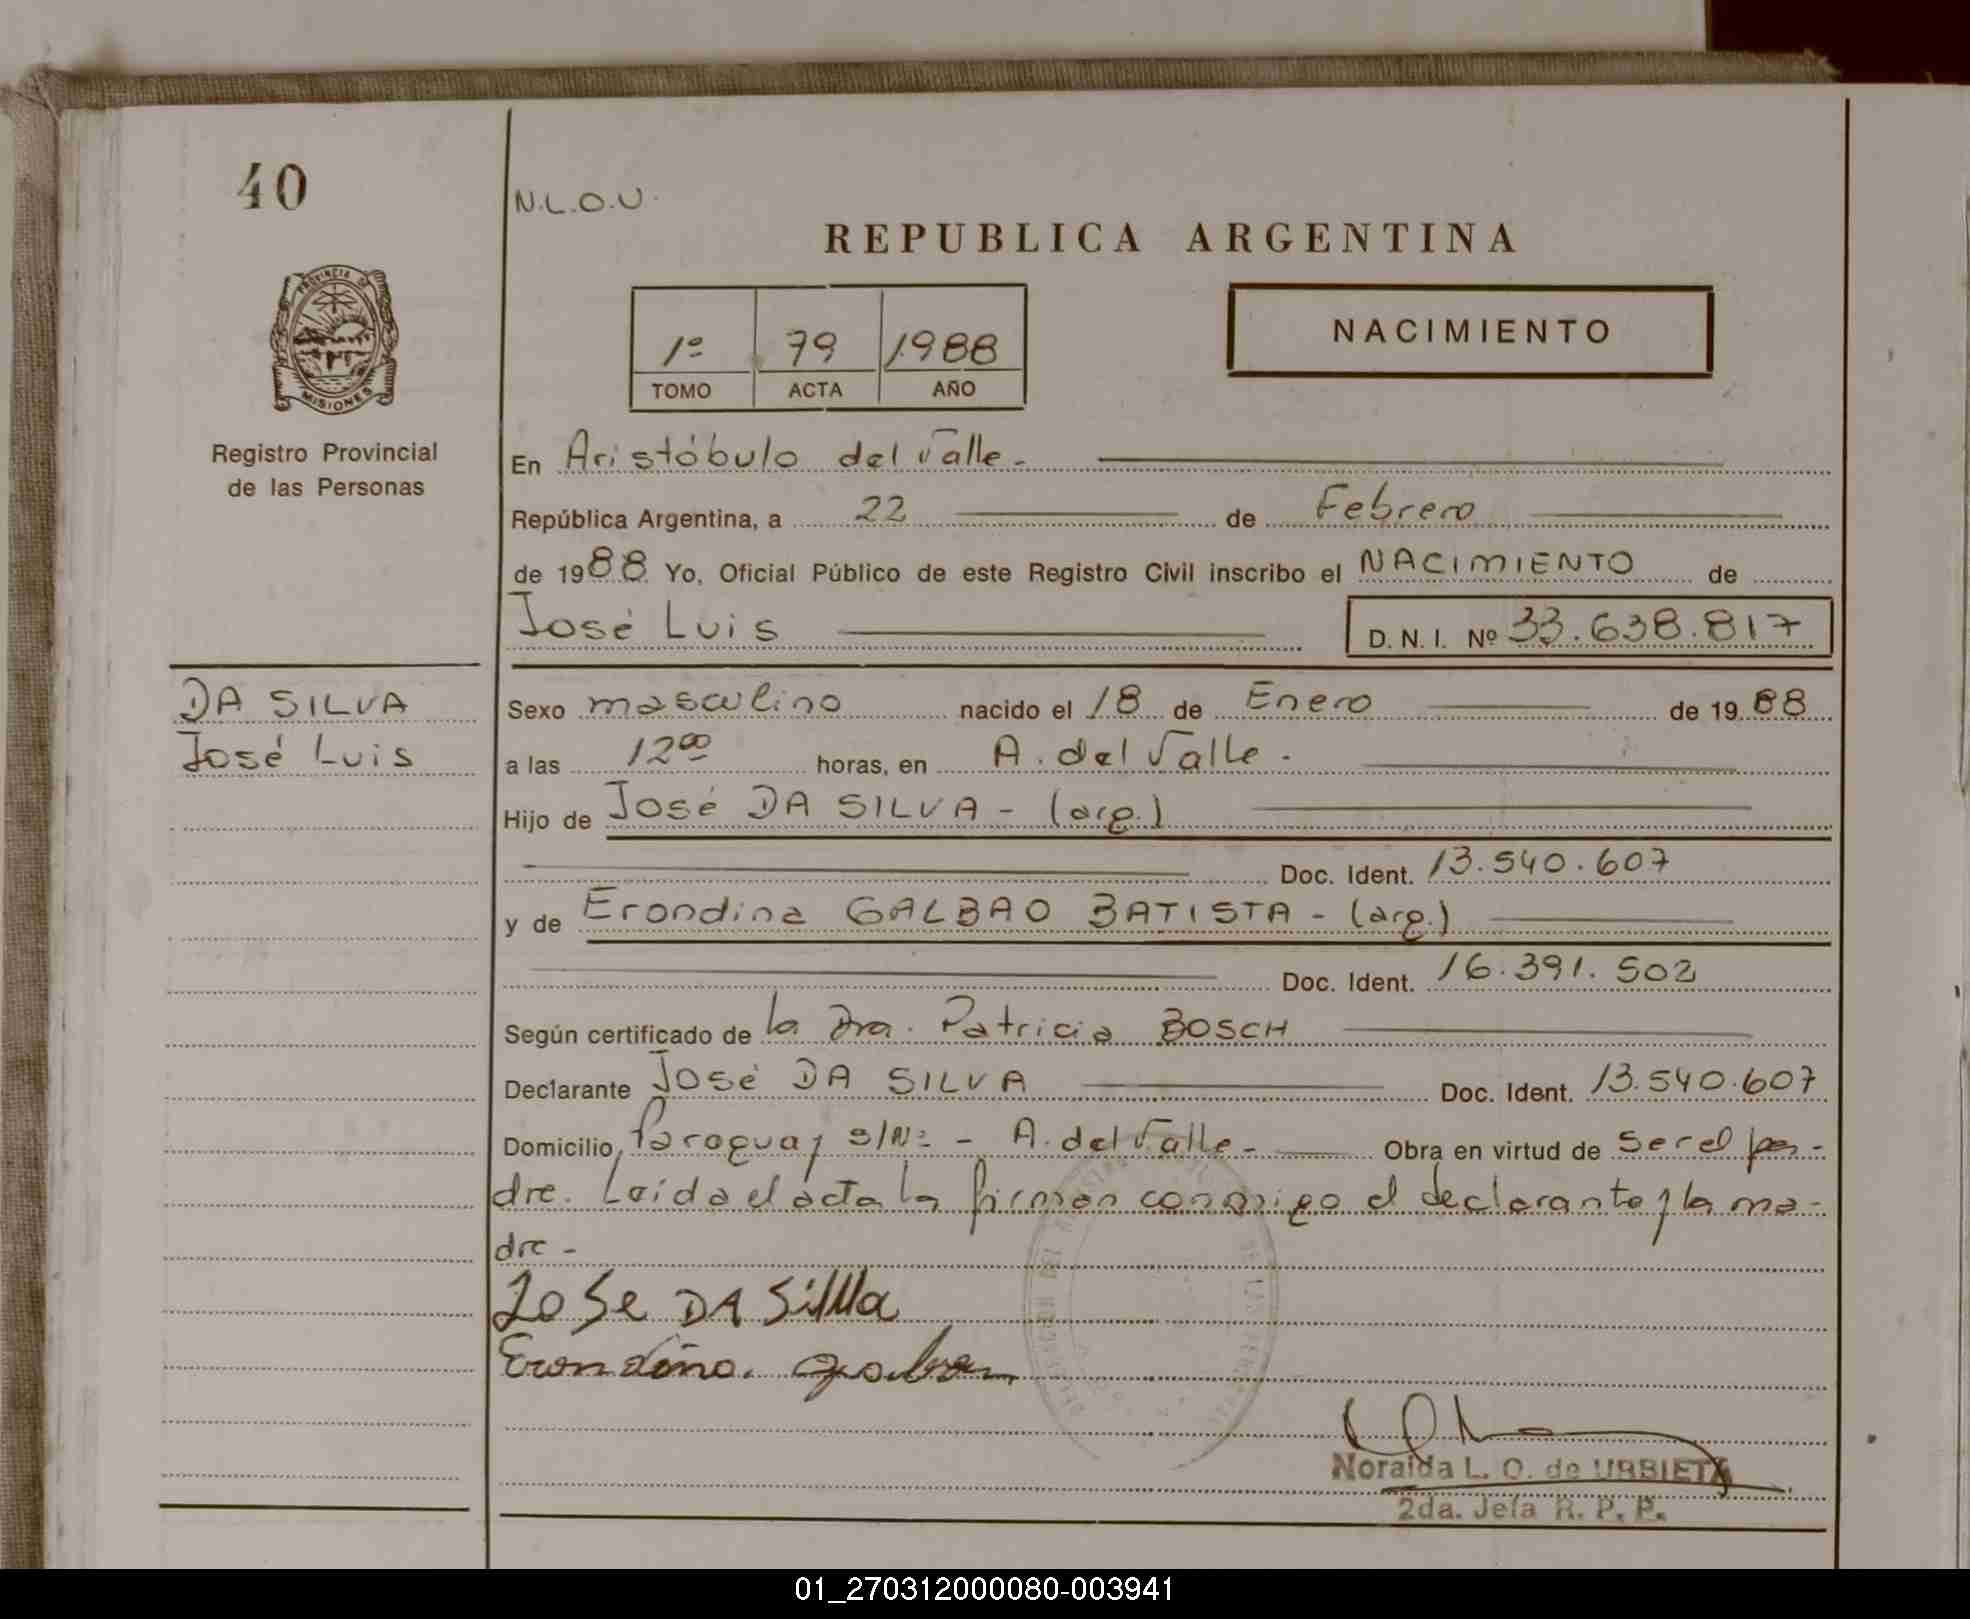 40
N.L.O.U.
REPUBLICA ARGENTINA
PROVINCIA DE
MISIONES
1º 79 1988
TOMO ACTA AÑO
NACIMIENTO
Registro Provincial
de las Personas
En Aristóbulo del Valle -
República Argentina, a 22 de Febrero
de 1988 Yo, Oficial Público de este Registro Civil inscribo el NACIMIENTO de
José Luis D. N. I. Nº 33.638.817
DA SILVA
José Luis
Sexo masculino nacido el 18 de Enero de 1988
a las 12⁰⁰ horas, en A. del Valle -
Hijo de José DA SILVA - (arg.)
Doc. Ident. 13.540.607
y de Erondina GALBAO BATISTA - (arg.)
Doc. Ident. 16.391.502
Según certificado de la Dra. Patricia BOSCH
Declarante José DA SILVA Doc. Ident. 13.540.607
Domicilio Paraguay s/Nº - A. del Valle - Obra en virtud de ser el pa-
dre. Leída el acta la firman conmigo el declarante y la ma-
dre -
Jose DA Silva
Erondina
Noraida L. O. de URBIETA
2da. Jefa R. P. P.
01_270312000080-003941